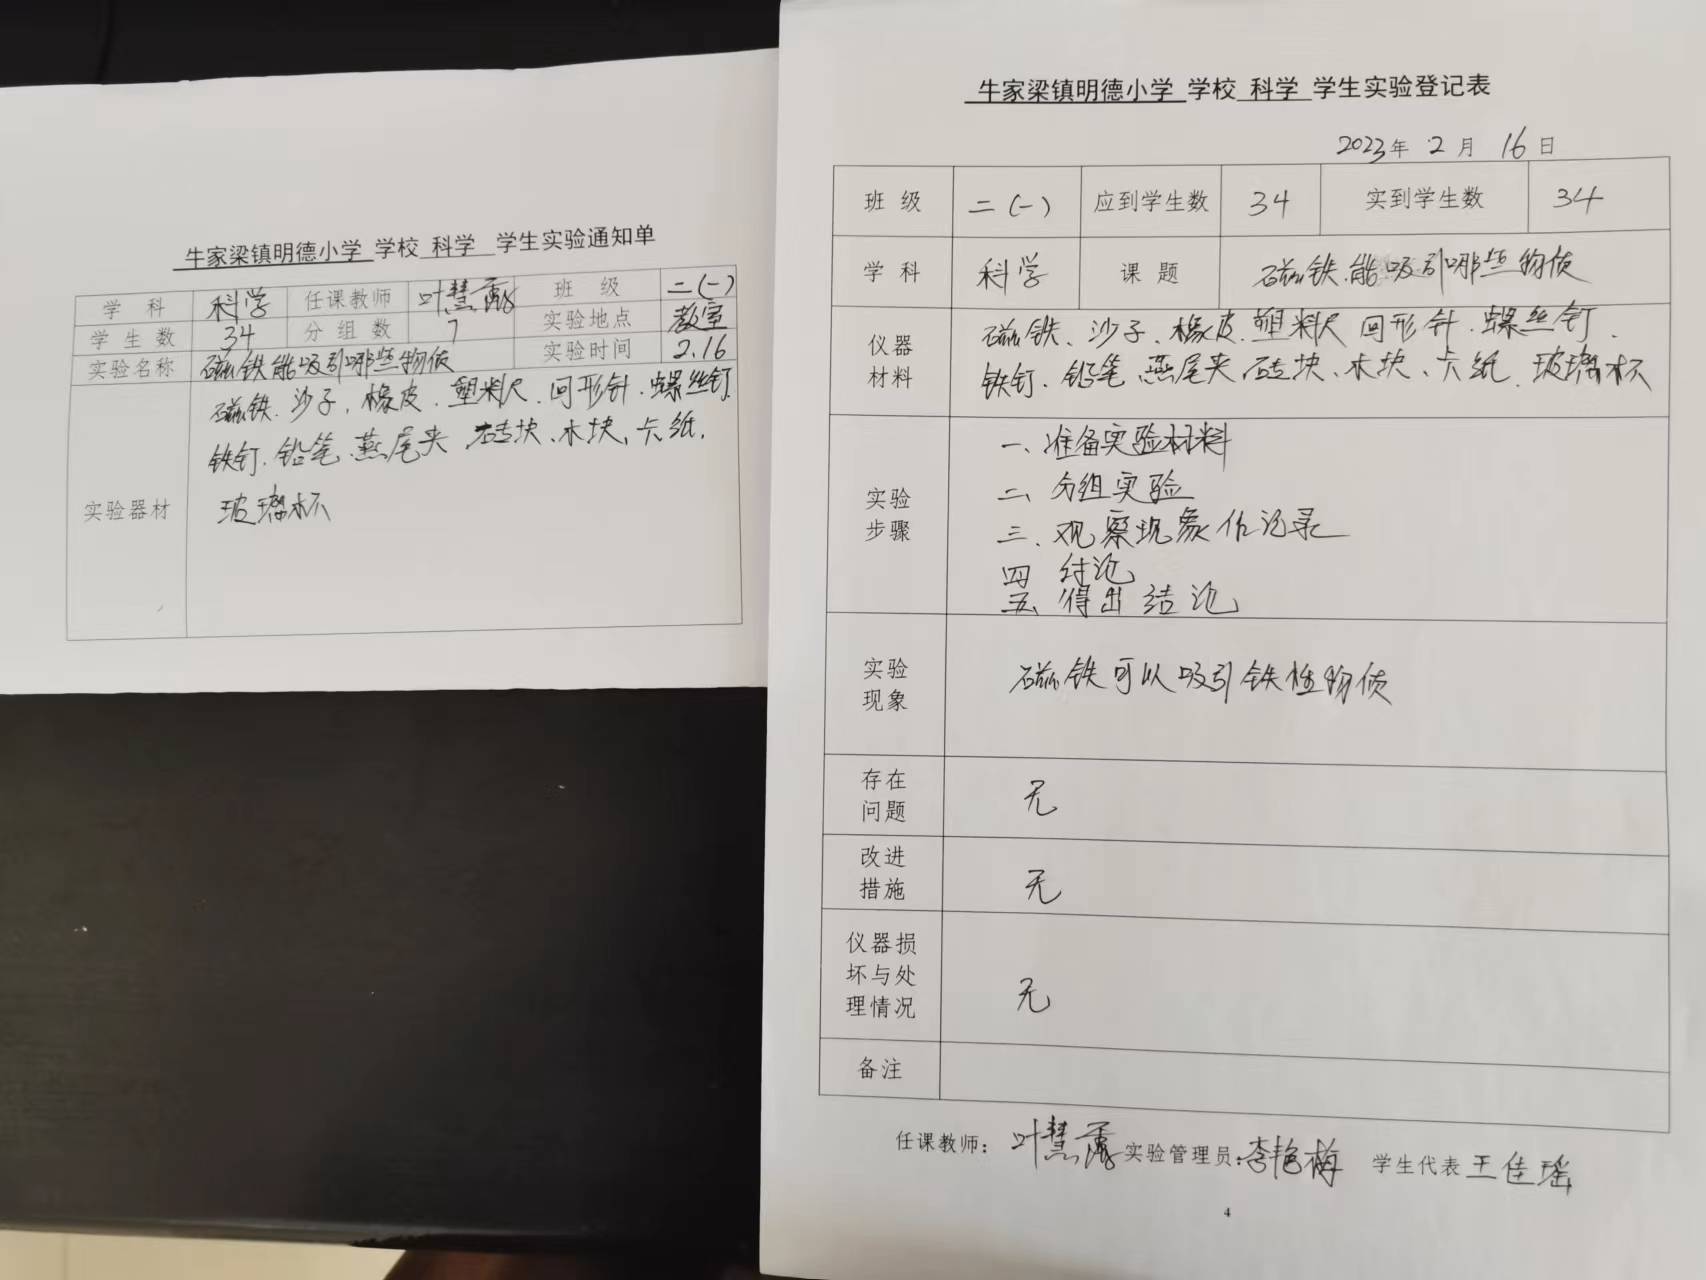 牛家梁镇明德小学 学校 科学 学生实验通知单
学科 科学 任课教师 叶慧 班级 二(一)
学生数 34 分组数 7 实验地点 教室
实验名称 磁铁能吸引哪些物质 实验时间 2.16
实验器材
磁铁、沙子、橡皮、塑料尺、回形针、螺丝钉
铁钉、铅笔、燕尾夹、砖块、木块、卡纸、
玻璃杯
牛家梁镇明德小学 学校 科学 学生实验登记表
2023年 2月 16日
班级 二(一) 应到学生数 34 实到学生数 34
学科 科学 课题 磁铁能吸引哪些物质
仪器
材料
磁铁、沙子、橡皮、塑料尺 回形针、螺丝钉、
铁钉、铅笔、燕尾夹、砖块、木块、卡纸、玻璃杯
实验
步骤
一、准备实验材料
二、分组实验
三、观察现象作记录
四 讨论
五、得出结论
实验
现象
磁铁可以吸引铁性物质
存在
问题
无
改进
措施
无
仪器损
坏与处
理情况
无
备注
任课教师： 叶慧 实验管理员：李艳梅 学生代表 王佳瑶
4